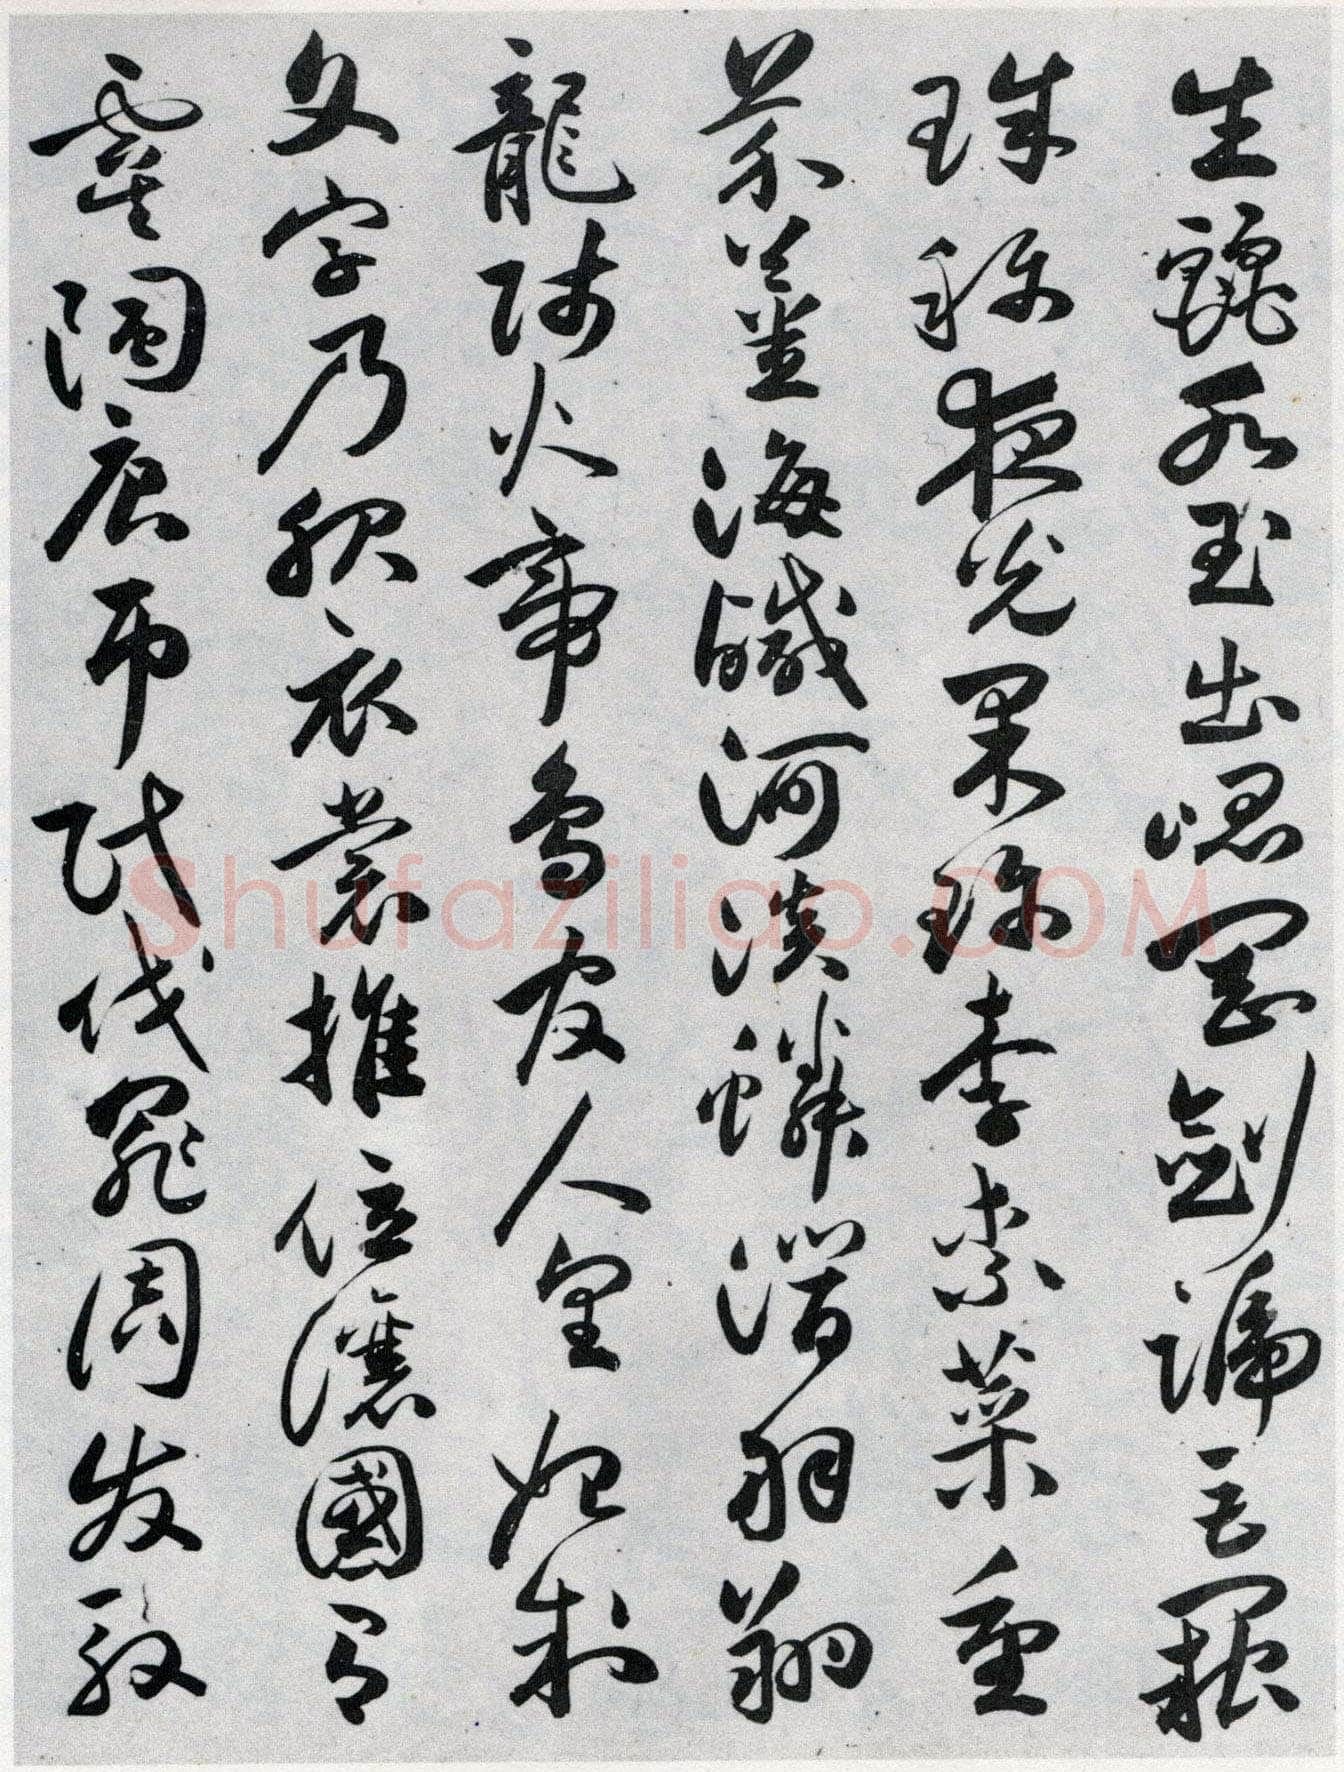 生麗水玉出崑崗劍號巨闕
珠稱夜光果珍李柰菜重
芥薑海醎河淡鱗潛羽翔
龍師火帝鳥官人皇始制
文字乃服衣裳推位讓國有
虞陶唐弔民伐罪周發殷
Shufaziliao.COM